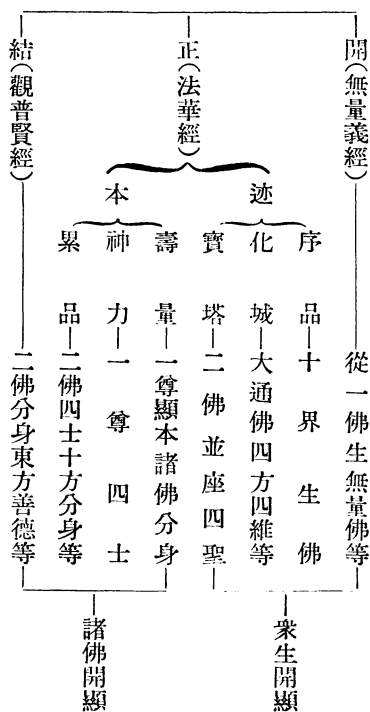 開（無量義經）——從一佛生無量佛等
正（法華經）
迹
序品—十界生佛
化城—大通佛四方四維等
寶塔—二佛並座四聖
本
壽量—一尊顯本諸佛分身
神力—一尊四士
累品—二佛四士十方分身等
結（觀普賢經）——二佛分身東方善德等
衆生開顯
諸佛開顯